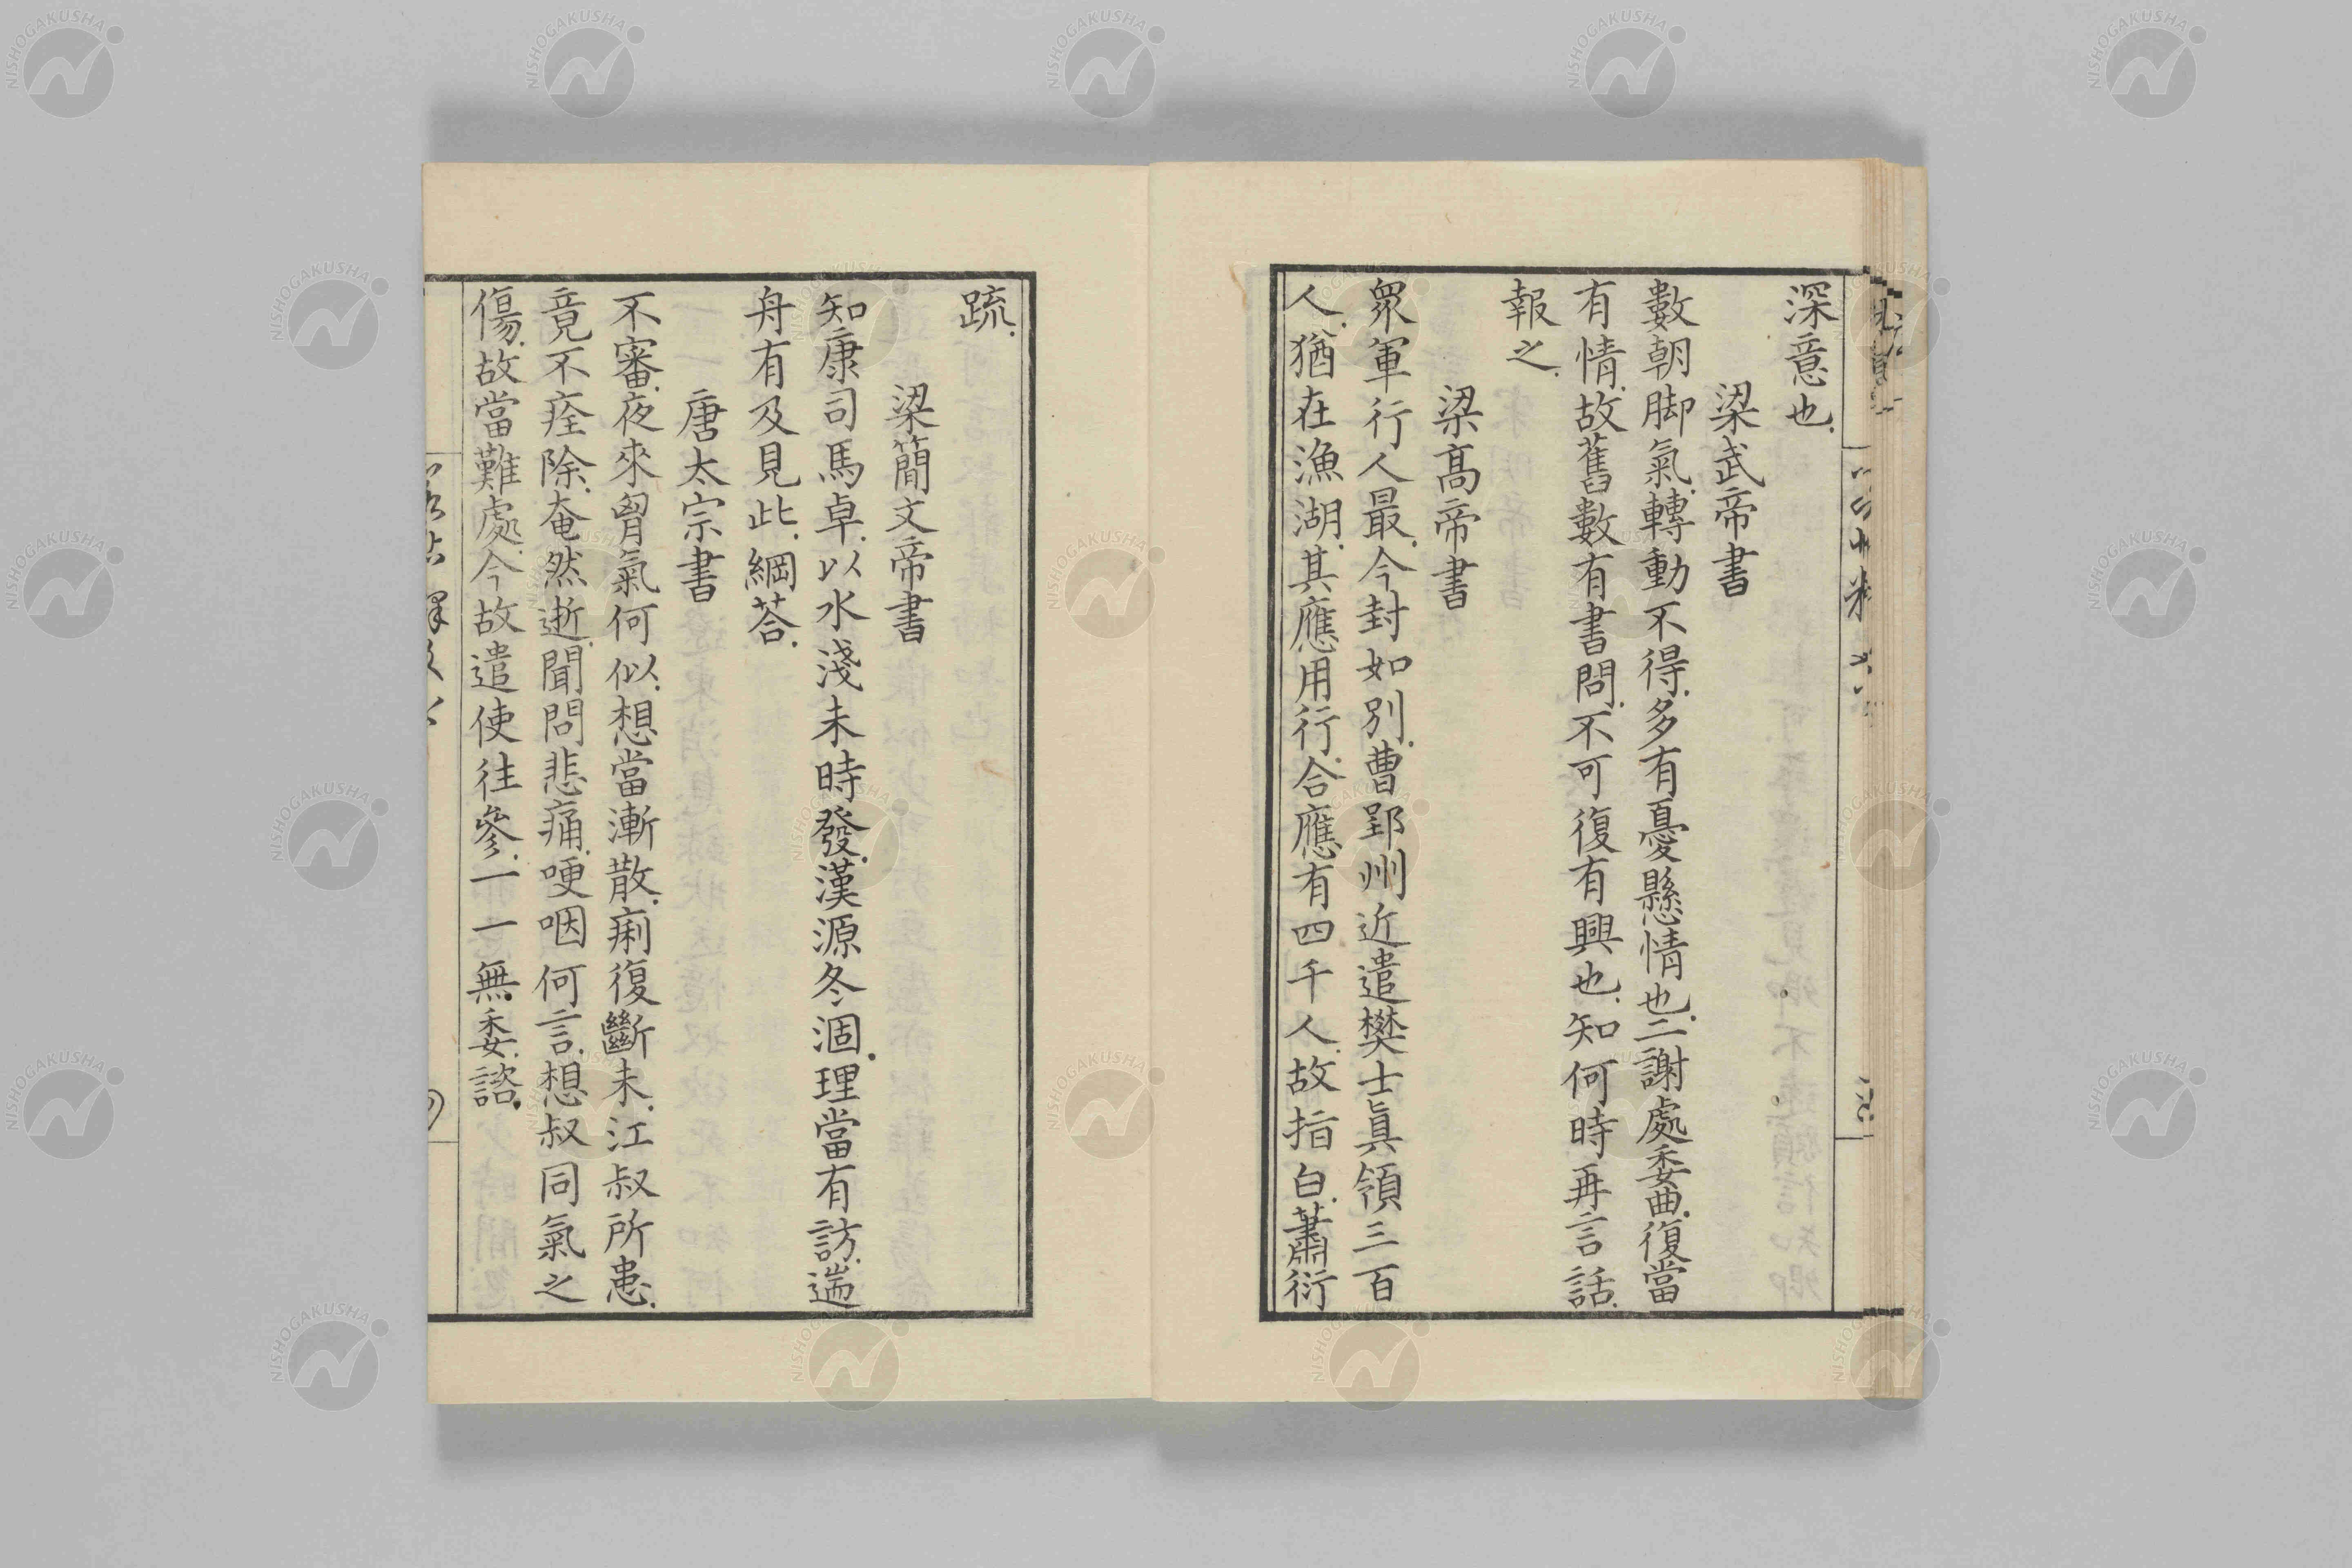 深意也.
梁武帝書
數朝脚氣.轉動不得.多有憂懸情也.二謝處委曲.復當
有情.故舊數有書問.不可復有興也.知何時再言話.
報之.
梁高帝書
衆軍行人最.今封如別.曹郢州近遣樊士眞領三百
人.猶在漁湖.其應用行.合應有四千人.故指白.蕭衍
疏.
梁簡文帝書
知康司馬卓.以水淺未時發.漢源冬涸.理當有訪.遄
舟有及見此.綱荅.
唐太宗書
不審.夜來胷氣何似.想當漸散.痢復斷未.江叔所患.
竟不痊除.奄然逝.聞問悲痛.哽咽何言.想叔同氣之
傷.故當難處.今故遣使往參.一一無.委.諮.
NISHOGAKUSHA